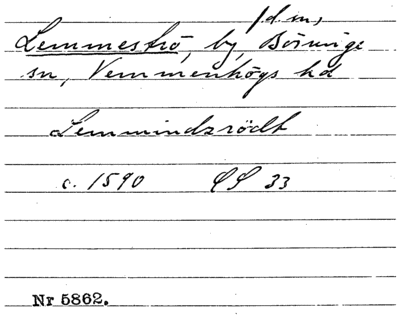 d. m,
Lemmeströ, by, Börringe
sn, Vemmenhögs hd
Lemmindzrödt
c. 1590 33
Nr 5862.